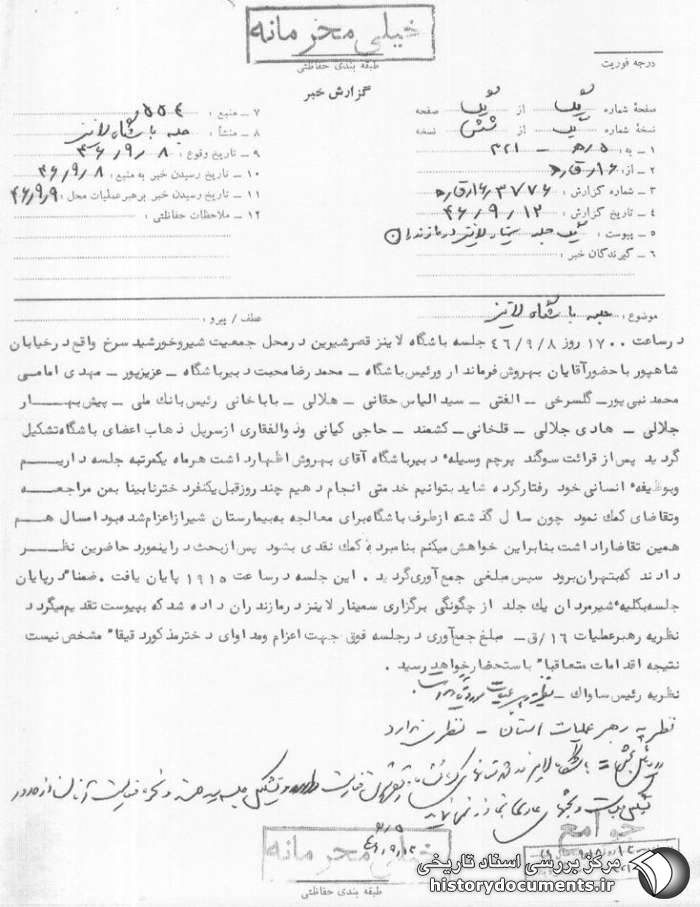 خیلی محرمانه
طبقه بندی حفاظتی
درجه فوریت
گزارش خبر
صفحهٔ شماره یک از یک صفحه
نسخهٔ شماره یک از شش نسخه
۱ – به : ۳۲۱
۲ – از :
۳ – شماره گزارش :
۴ – تاریخ گزارش : ۴۶/۹/۱۲
۵ – پیوست : یک جلد سمینار لاینز در مازندران
۶ – گیرندگان خبر :
۷ – منبع : ۵۵۴
۸ – منشأ : جلسه باشگاه لاینز
۹ – تاریخ وقوع : ۴۶/۹/۸
۱۰ – تاریخ رسیدن خبر به منبع : ۴۶/۹/۸
۱۱ – تاریخ رسیدن خبر برهبرعملیات محل : ۴۶/۹/۹
۱۲ – ملاحظات حفاظتی :
موضوع : جلسه باشگاه لاینز
عطف / پیرو :
درساعت ۱۷۰۰ روز ۴۶/۹/۸ جلسه باشگاه لاینز قصرشیرین درمحل جمعیت شیروخورشید سرخ واقع درخیابان
شاهپور باحضورآقایان بهروش فرماندار ورئیس باشگاه – محمد رضا محبت دبیرباشگاه – عزیزپور – مهدی امامی
محمد نبی پور – گلسرخی – الفتی – سید الیاس حقانی – هلالی – باباخانی رئیس بانک ملی – پیش بهار
جلالی – هادی جلالی – قلخانی – کشمند – حاجی کیانی وذوالفقاری ازسرپل ذهاب اعضای باشگاه تشکیل
گردید پس از قرائت سوگند پرچم وسیلهٔ دبیرباشگاه آقای بهروش اظهارداشت هرماه یکمرتبه جلسه داریم
وبوظیفهٔ انسانی خود رفتارکرده شاید بتوانیم خدمتی انجام دهیم چند روزقبل یکنفردخترنابینا بمن مراجعه
وتقاضای کمک نمود چون سال گذشته ازطرف باشگاه برای معالجه به بیمارستان شیرازاعزام شده بود امسال هم
همین تقاضاراداشت بنابراین خواهش میکنم بنامبرده کمک نقدی بشود پس ازبحث دراینمورد حاضرین نظر
دادند که بتهران برود سپس مبلغی جمع آوری گردید . این جلسه درساعت ۱۹۱۵ پایان یافت . ضمناً درپایان
جلسه بکلیهٔ شیرمردان یک جلد از چگونگی برگزاری سمینار لاینز درمازندران داده شد که بپیوست تقدیم میگردد
نظریه رهبرعملیات ۱۶/ق – مبلغ جمع آوری درجلسه فوق جهت اعزام ومداوای دخترمذکور دقیقاً مشخص نیست
نتیجه اقدامات متعاقباً باستحضار خواهد رسید .
نظریه رئیس ساواک – نظریه رهبر عملیات
نظریه رهبر عملیات استان – نظری ندارد
جوامع
خیلی محرمانه
طبقه بندی حفاظتی
مرکز بررسی اسناد تاریخی
historydocuments.ir